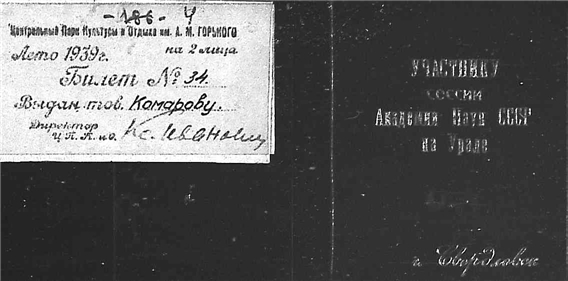 -186- 4
Центральный Парк Культуры и Отдыха им. А. М. ГОРЬКОГО
Лето 1939 г. на 2 лица
Билет № 34.
Выдан тов. Комарову.
Директор
Ц.П.К. и О.
УЧАСТНИКУ
сессии
Академии Наук СССР
на Урале
г. Свердловск